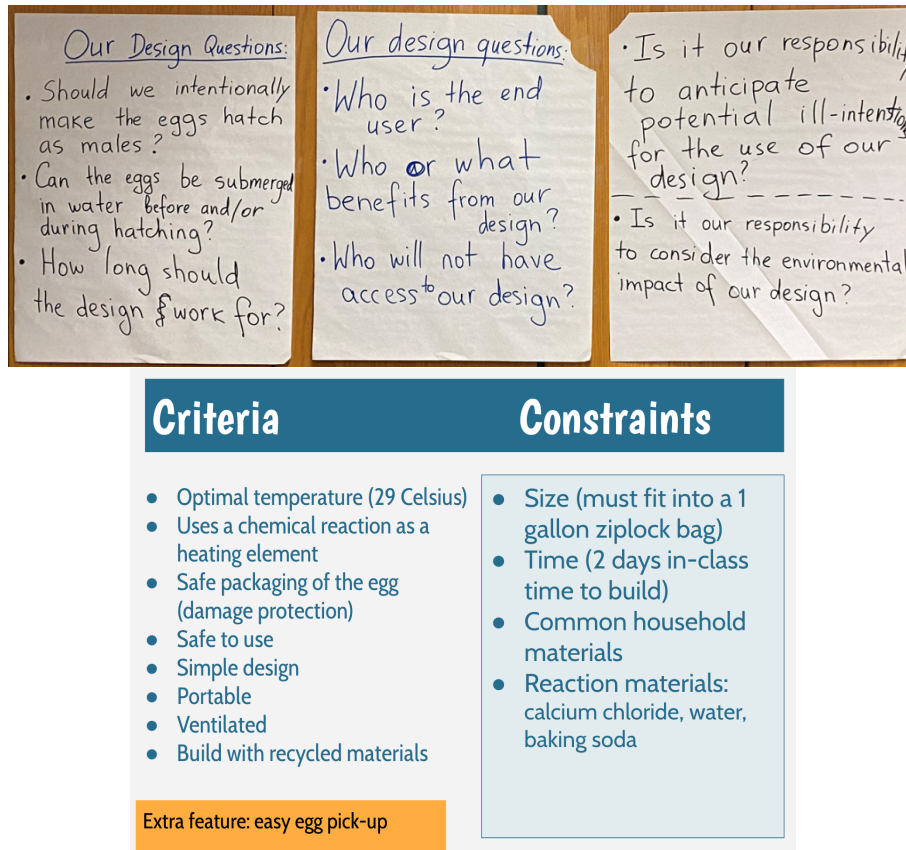 Our Design Questions:
• Should we intentionally
make the eggs hatch
as males?
• Can the eggs be submerged
in water before and/or
during hatching?
• How long should
the design work for?
Our design questions:
• Who is the end
user?
• Who or what
benefits from our
design?
• Who will not have
access to our design?
• Is it our responsibility
to anticipate
potential ill-intentions
for the use of our
design?
• Is it our responsibility
to consider the environmental
impact of our design?
Criteria
● Optimal temperature (29 Celsius)
● Uses a chemical reaction as a
heating element
● Safe packaging of the egg
(damage protection)
● Safe to use
● Simple design
● Portable
● Ventilated
● Build with recycled materials
Extra feature: easy egg pick-up
Constraints
● Size (must fit into a 1
gallon ziplock bag)
● Time (2 days in-class
time to build)
● Common household
materials
● Reaction materials:
calcium chloride, water,
baking soda